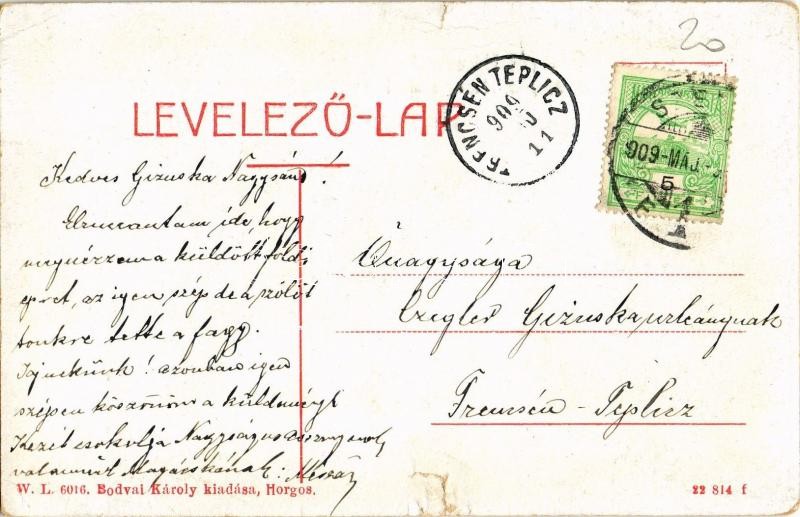 20
LEVELEZŐ-LAP
TRENCSÉN TEPLICZ
909
11
909 MÁJ.
5
Kedves Gizuska Nagysám!
Elruccantam ide, hogy
megnézzem a küldött földi
epret, az igen szép de a szőlőt
tönkre tette a fagy.
azonban igen
szépen köszönöm a küldeményt
Kezét csókolja Nagyságos
valamint Magácskának:
Őnagysága
Czegler Gizuska urleánynak
Trencsén-Teplicz
W. L. 6016. Bodvai Károly kiadása, Horgos.
22 814 f